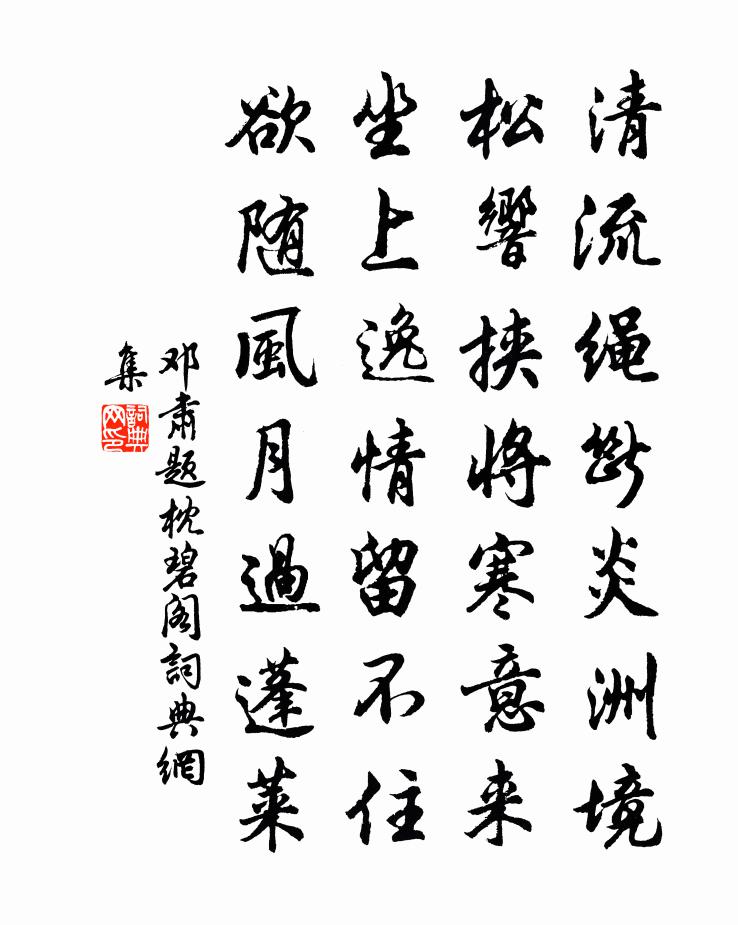 清流绳断炎洲境
松響挟將寒意来
坐上逸情留不住
欲随風月過蓬莱
邓肃题枕碧阁詞典網
集
詞典网印